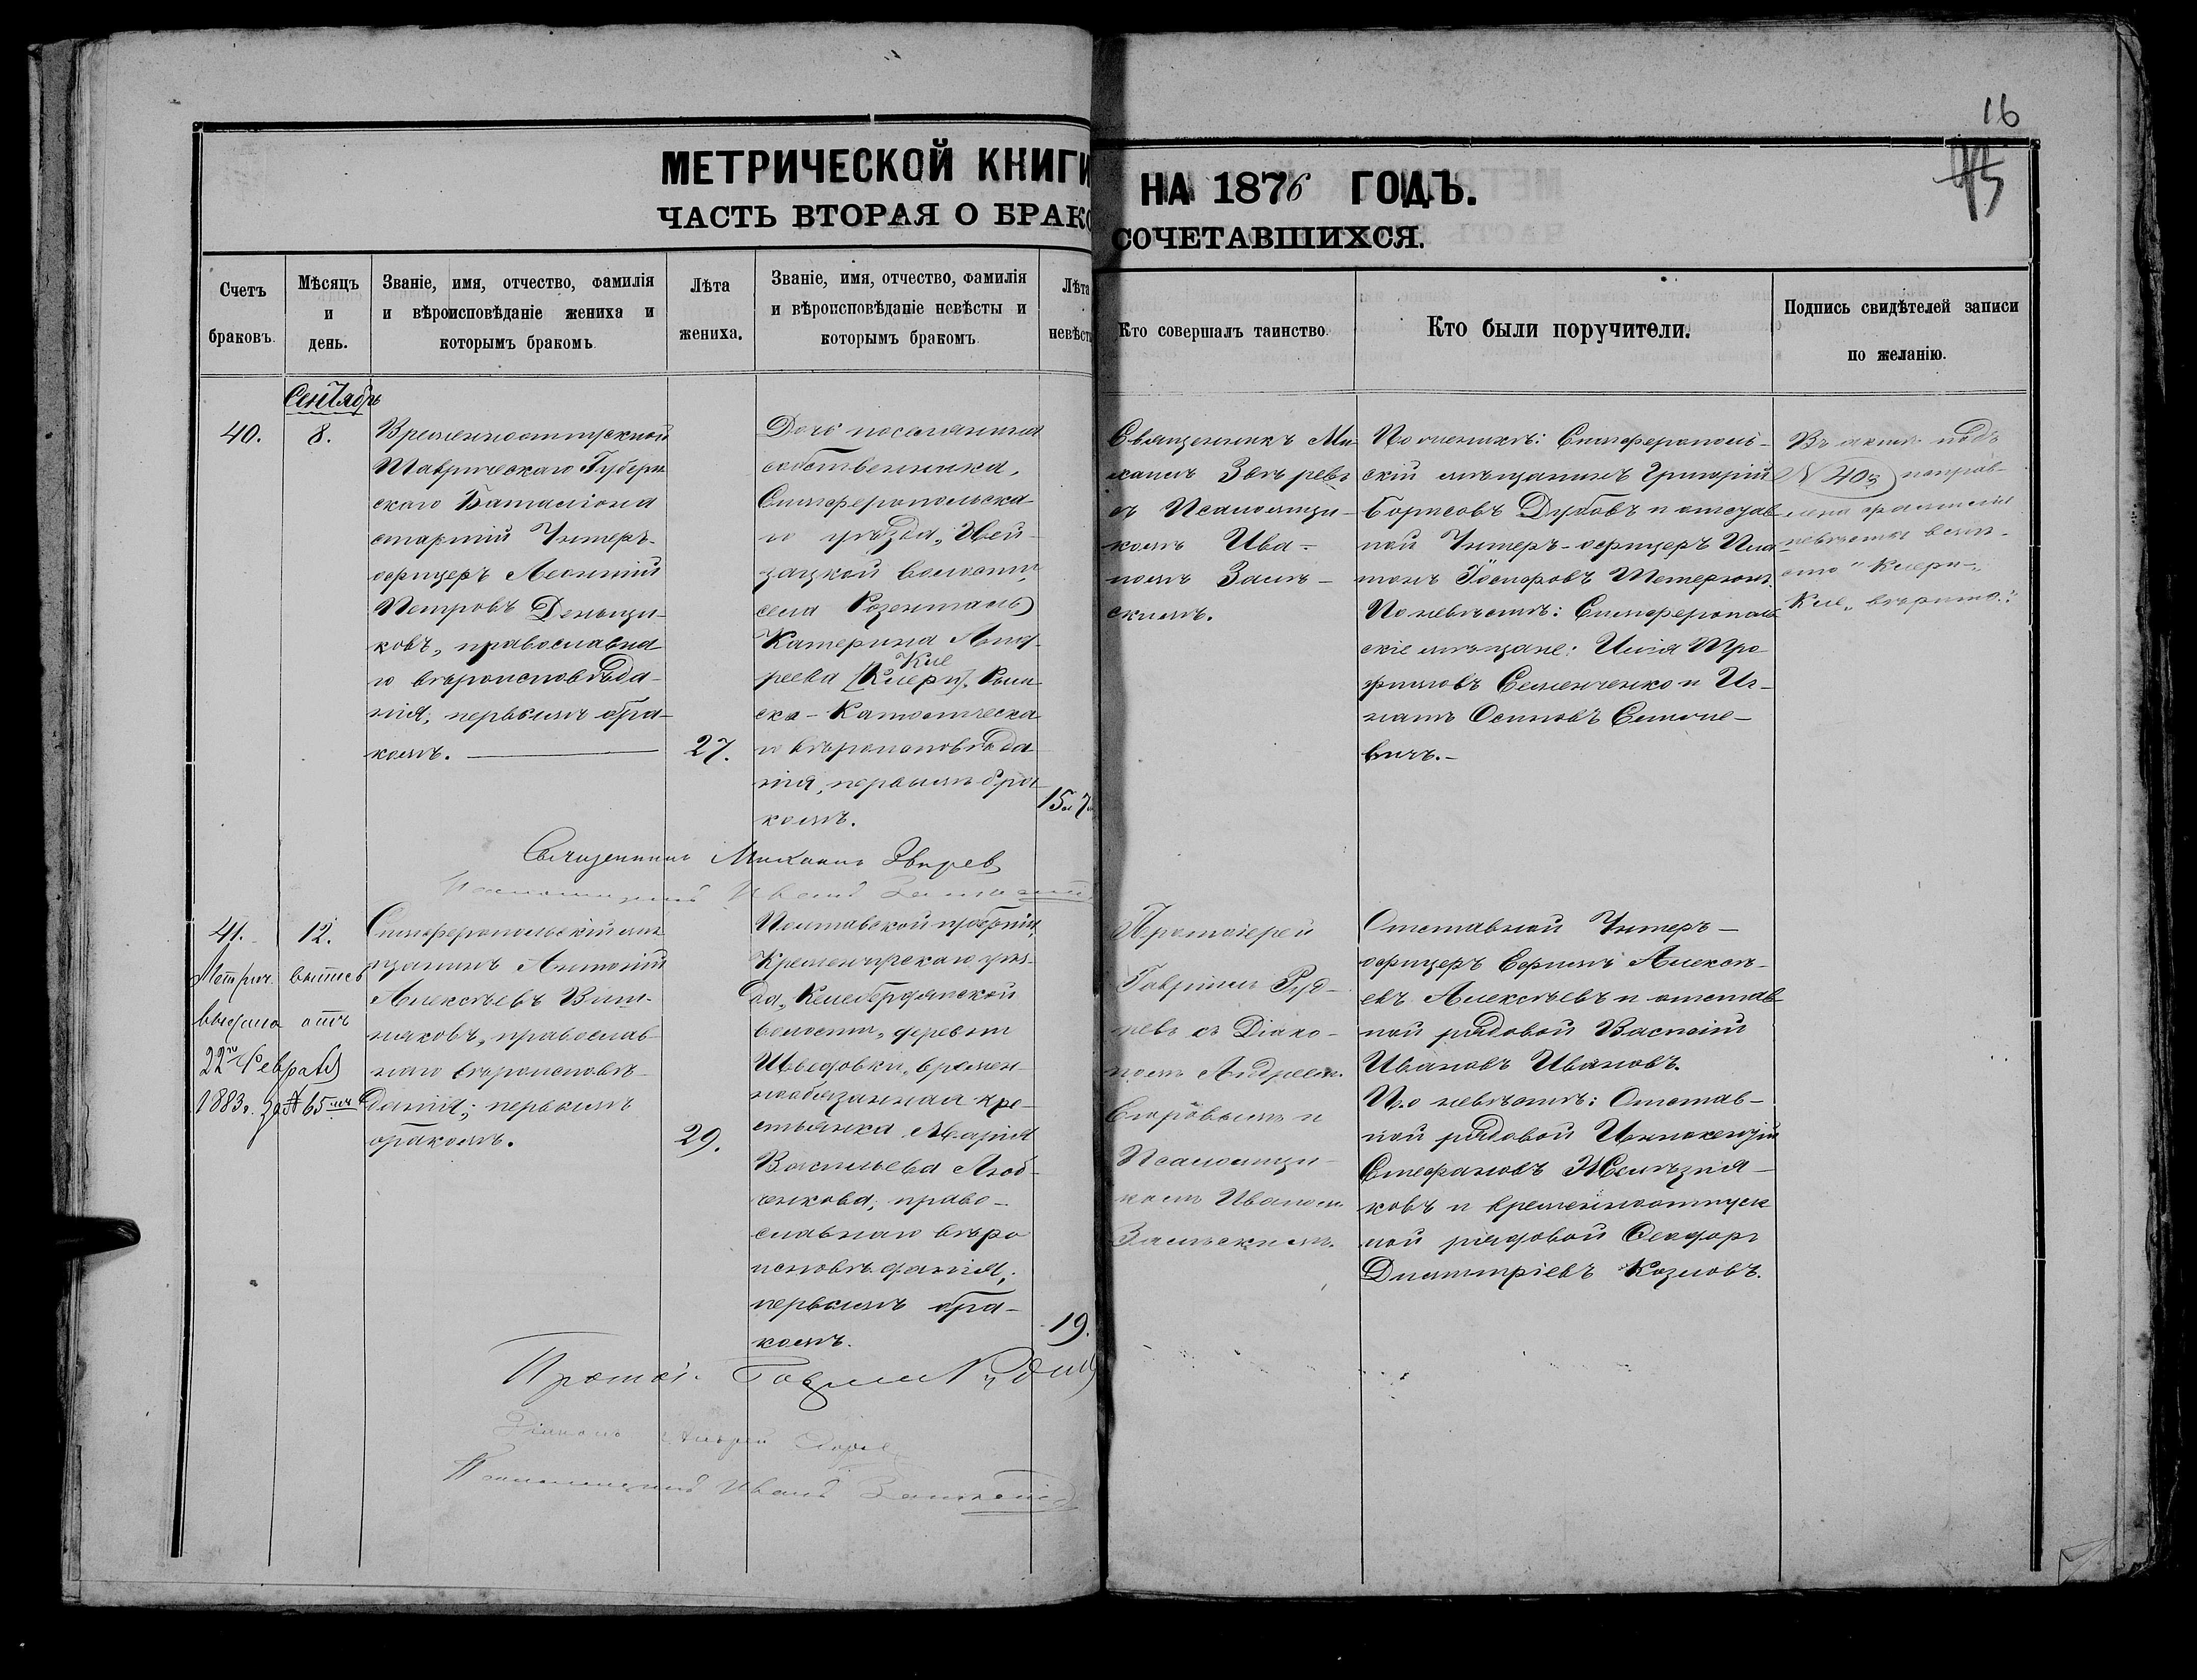 16
95
МЕТРИЧЕСКОЙ КНИГИ НА 1876 ГОДЪ.
ЧАСТЬ ВТОРАЯ О БРАКОСОЧЕТАВШИХСЯ.
Счетъ браковъ.
Мѣсяцъ и день.
Званіе, имя, отчество, фамилія
и вѣроисповѣданіе жениха и
которымъ бракомъ
Лѣта жениха.
Званіе, имя, отчество, фамилія
и вѣроисповѣданіе невѣсты и
которымъ бракомъ
Лѣта невѣсты
Кто совершалъ таинство.
Кто были поручители.
Подпись свидѣтелей записи
по желанію.
Сентябрь
40.
8.
Временноотпускной
Таврическаго Губерн
скаго Баталіона
старшій Унтеръ-
офицеръ Леонтій
Петровъ Деньщи-
ковъ, православна
го вѣроисповѣда-
нія, первымъ бра-
комъ.
27.
Дочь поселянина
собственника,
Симферопольска
го уѣзда, Ней-
зацкой волости,
села Розенталь
Катерина Анд-
Кле
реева [Клерн]. Рим
ско-Католическа
го вѣроисповѣда
нія, первымъ бра
комъ.
15
Священникъ Ми-
хаилъ Звѣревъ
съ Псаломщи-
комъ Ива-
номъ Залѣ-
скимъ.
По женихѣ: Симферополь-
скій мѣщанинъ Григорій
Борисовъ Дубовъ и отстав
ной Унтеръ-офицеръ Пла-
тонъ
По невѣстѣ: Симферополь
скіе мѣщане: Илія Тро
фимовъ Семенченко и Иг-
натъ Осиповъ Симоне-
вичъ.-
Въ актѣ подъ
№ 40 поправ-
лена фамилія
невѣсты вмѣ-
сто "Клерн"
Кле" вѣрно.
Священникъ Михаилъ Звѣрев
Псаломщикъ Иванъ Залѣскій
41.
12.
Метрич. выпись
выдана отъ
22го Февраля
1883г. за № 65мъ
Симферопольскій мѣ
щанинъ Антоній
Алексѣевъ Виш-
няковъ, православ
наго вѣроисповѣ-
данія; первымъ
бракомъ.
29.
Полтавской губерніи,
Кременчугскаго уѣз-
да, Келебердянской
волости, деревни
Шведовки, времен
нообязанная кре-
стьянка Марія
Васильева Люб-
ченкова, право-
славнаго вѣро
исповѣданія,
первымъ бра-
комъ.
19.
Протоіерей
Гавріилъ Руд-
невъ съ Діако-
номъ Андреемъ
Псаломщи-
комъ Иваномъ
Залѣскимъ.
Отставной Унтеръ-
офицеръ Ефимъ Алексѣ-
евъ Алексѣевъ и отстав
ной рядовой Василій
Ивановъ Ивановъ.
По невѣстѣ: Отстав-
ной рядовой Иннокентій
Стефановъ Желѣзня-
ковъ и временноотпуск
ной рядовой Ѳеодоръ
Димитріевъ Козловъ.
Протоі. Гавріил Рудн
Діаконъ Андрей
Псаломщикъ Иванъ Залѣскій